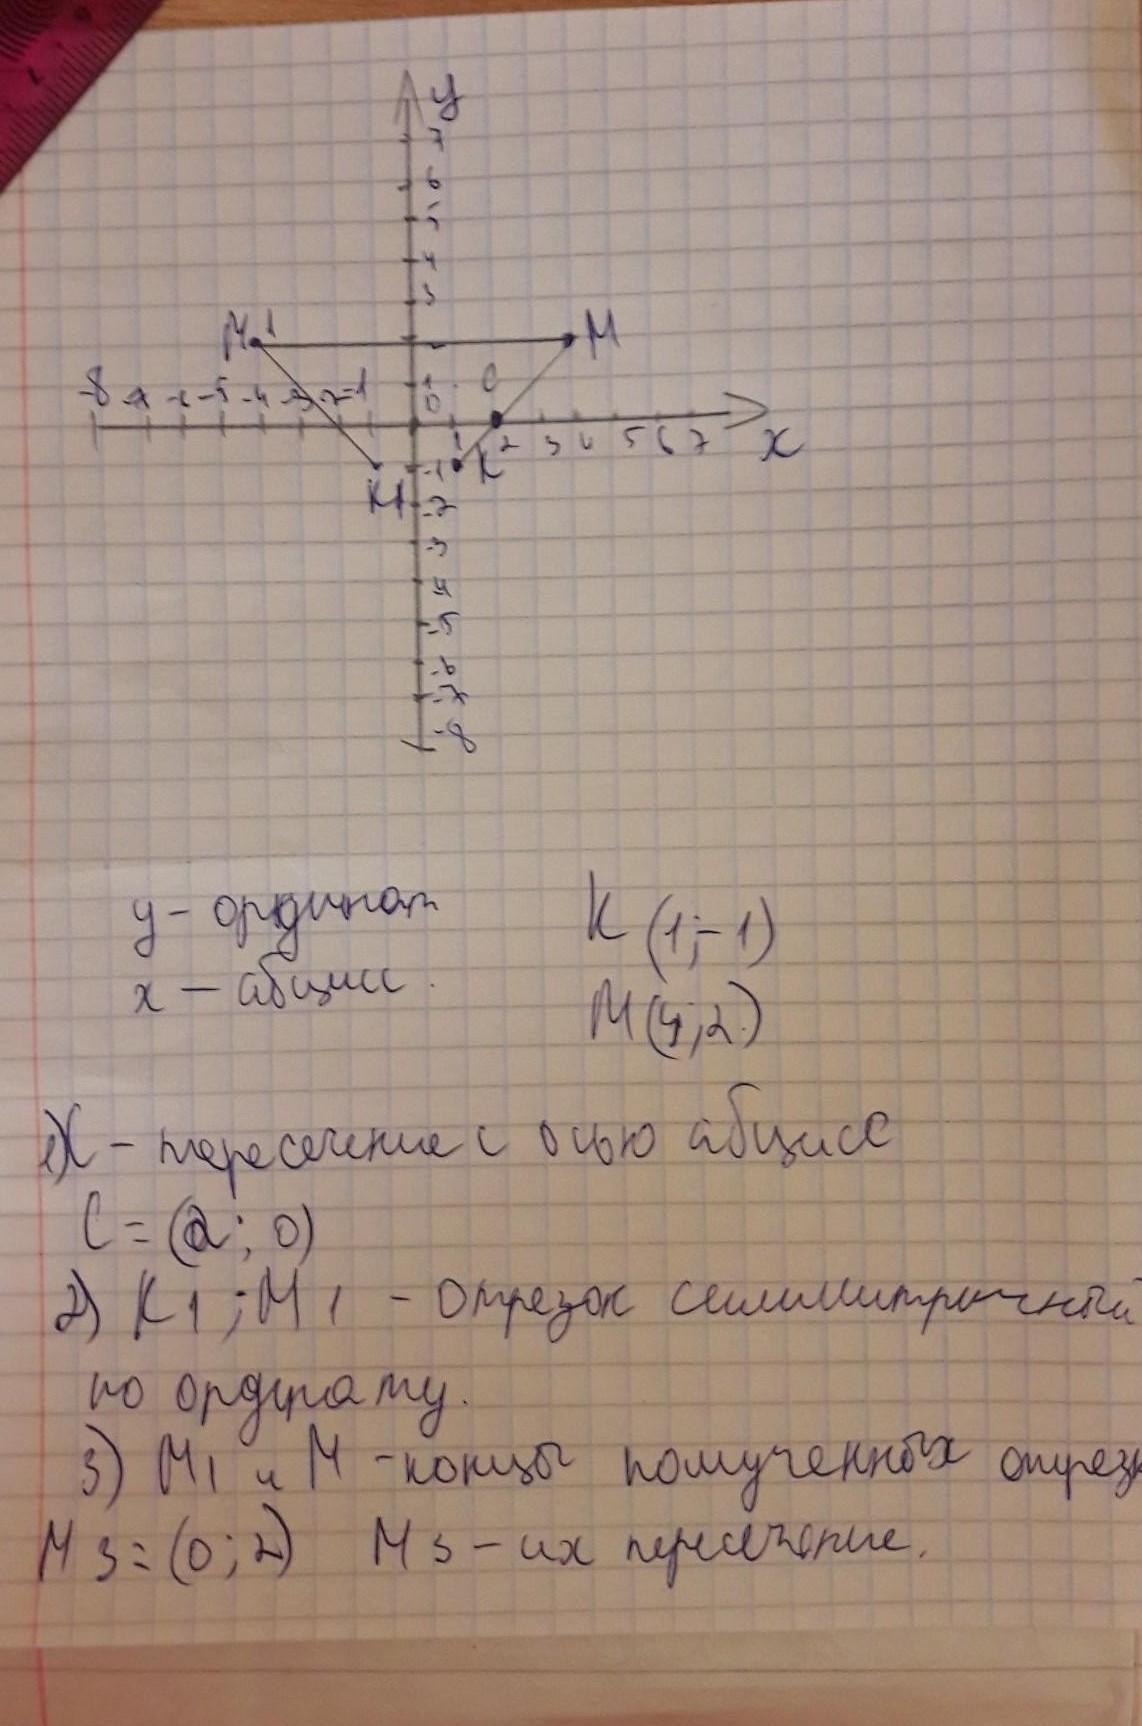 у
7
6
5
4
3
М1
М
-8 -7 -6 -5 -4 -3 -2 -1
1
С
0
1 2 3 4 5 6 7
х
-1
К
К1
-2
-3
4
-5
-6
-7
-8
у - ординат
К (1;-1)
х - абцисс.
М (4;2)
1) Х - пересечение с осью абцисс
С = (2; 0)
2) К1 ; М1 - отрезок симмитричный
по ординату.
3) М1 и М - концы полученных отрезк
М3 = (0; 2) М3 - их пересечение.